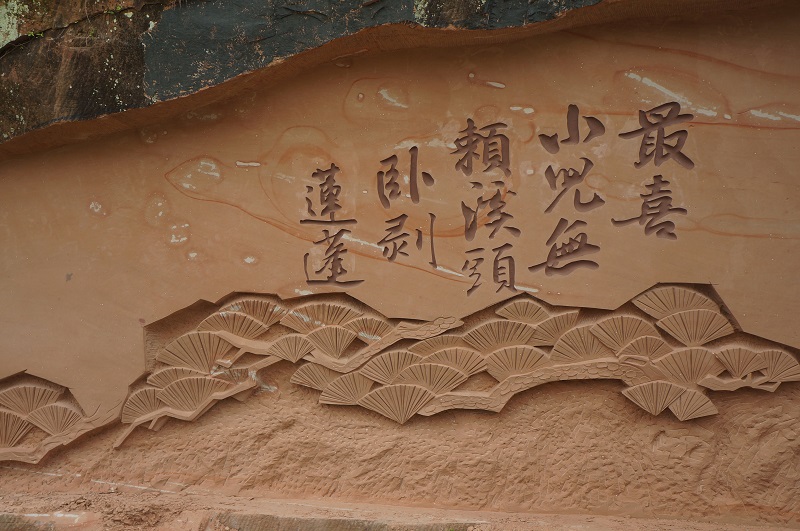 最喜
小兒無
賴溪頭
卧剥
蓮蓬